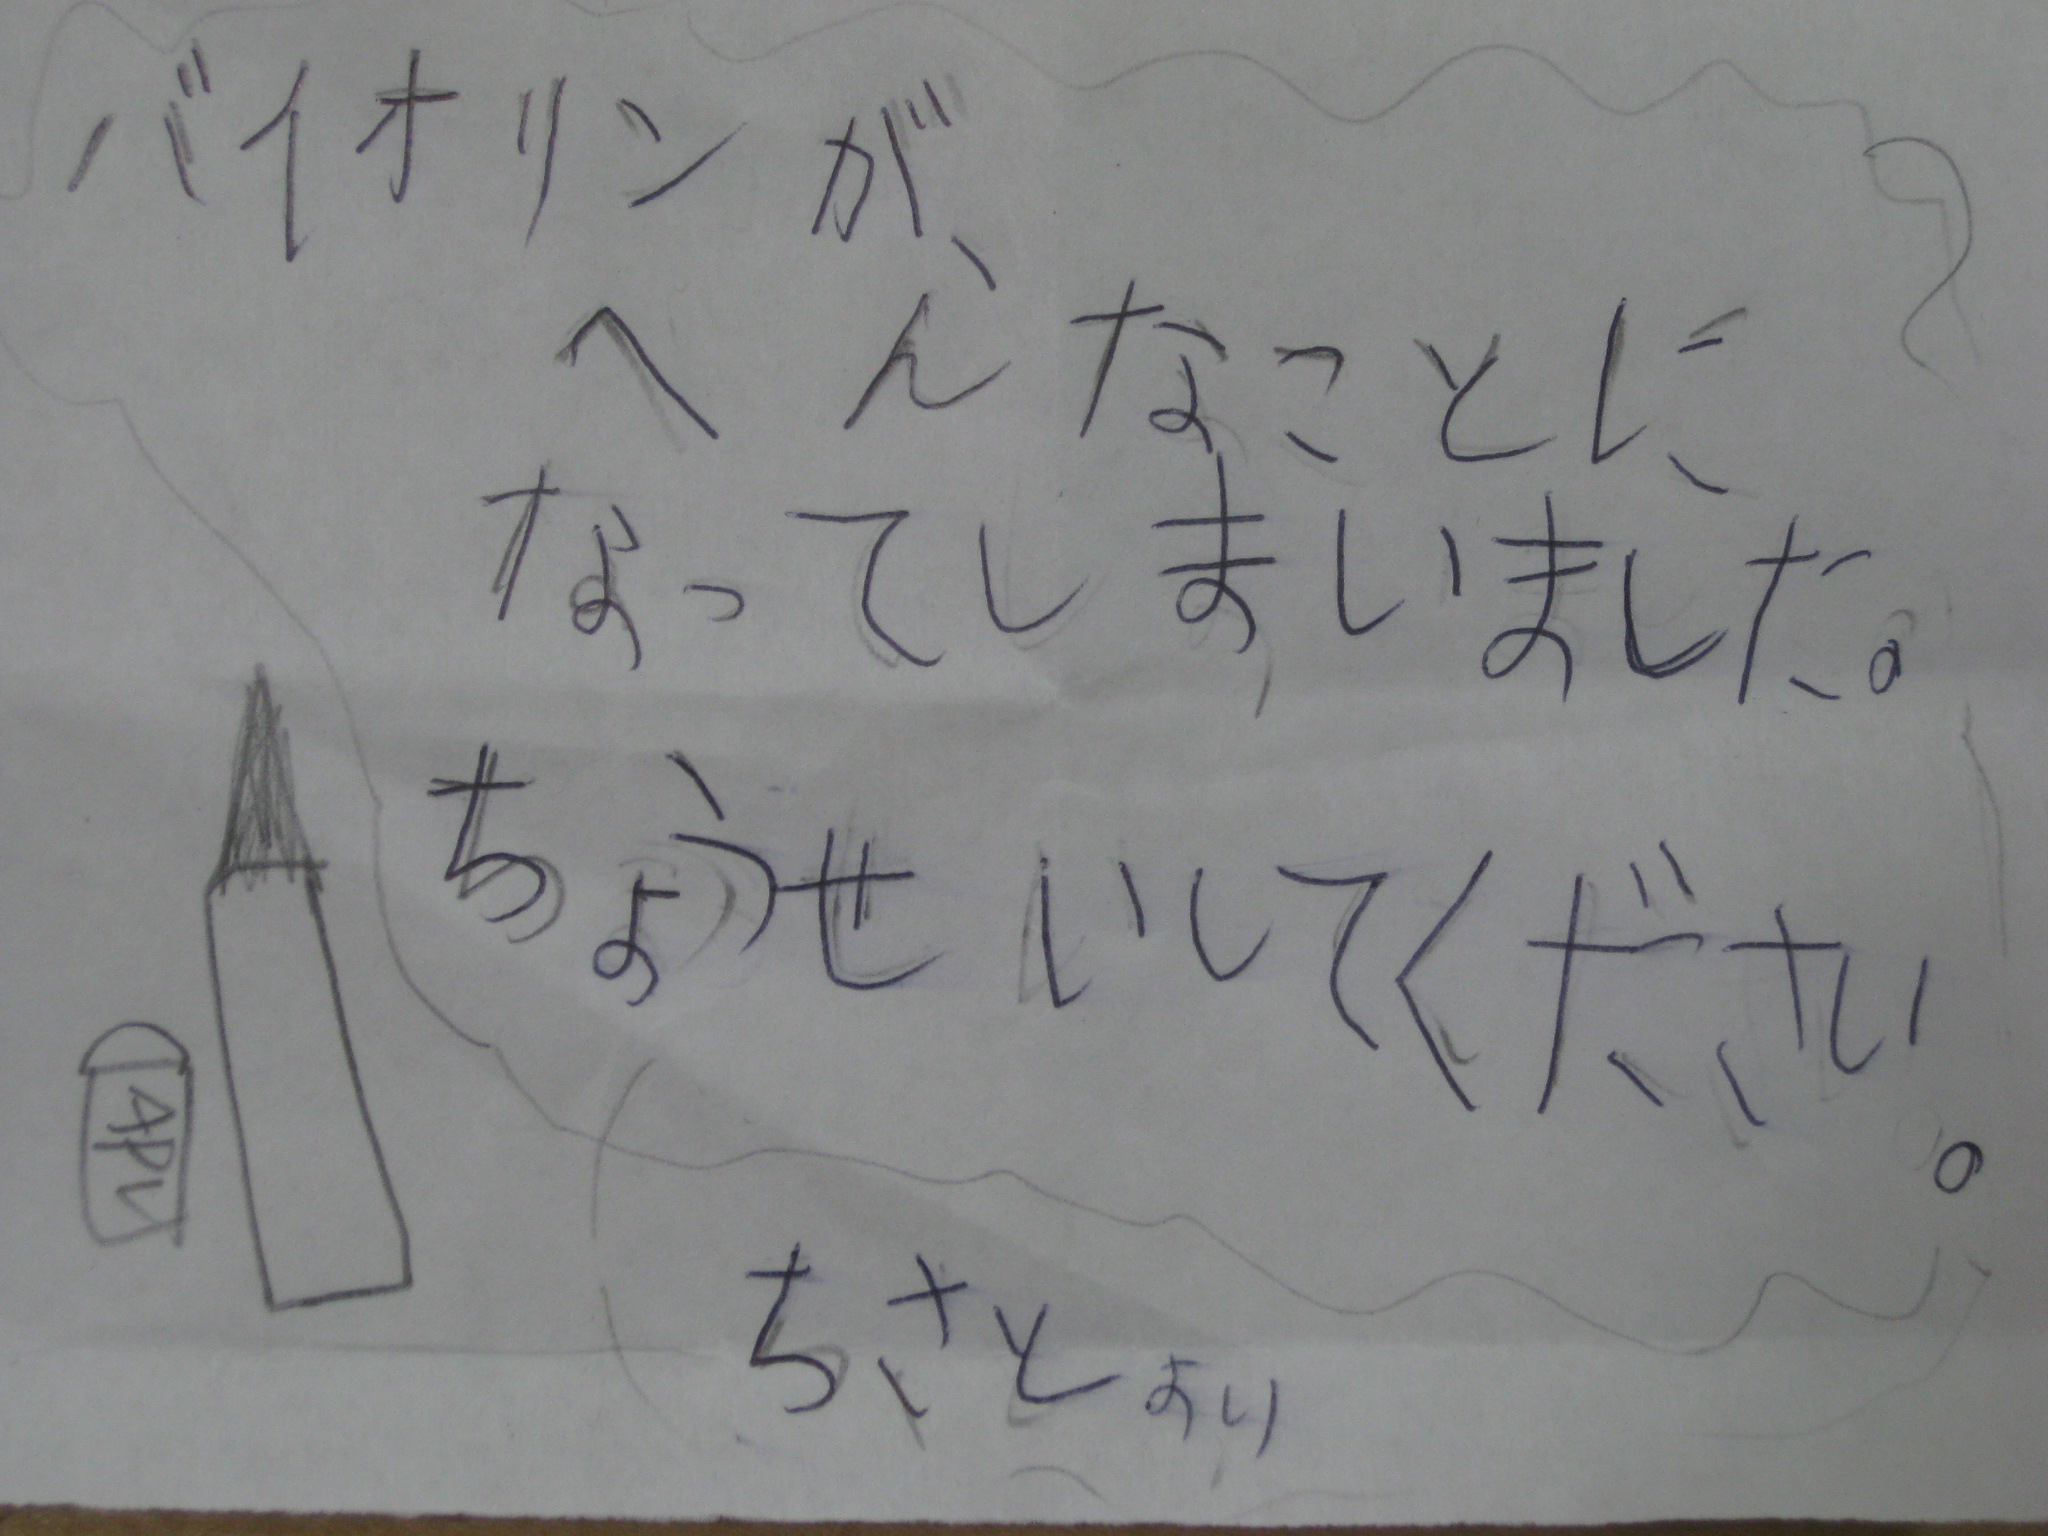 バイオリンが、
へんなことに
なってしまいました。
ちょうせいしてください。
ちさとより